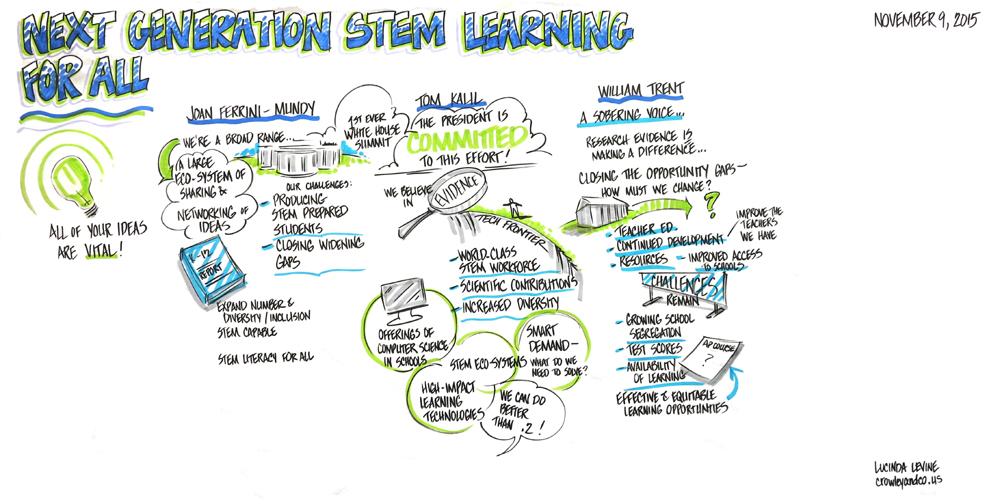 NEXT GENERATION STEM LEARNING
FOR ALL
NOVEMBER 9, 2015
ALL OF YOUR IDEAS
ARE VITAL!
JOAN FERRINI-MUNDY
WE'RE A BROAD RANGE...
A LARGE
ECO-SYSTEM OF
SHARING &
NETWORKING OF
IDEAS
K-12
REPORT
OUR CHALLENGES:
- PRODUCING
STEM PREPARED
STUDENTS
- CLOSING WIDENING
GAPS
EXPAND NUMBER &
DIVERSITY / INCLUSION
STEM CAPABLE
STEM LITERACY FOR ALL
1ST EVER
WHITE HOUSE
SUMMIT
TOM KALIL
THE PRESIDENT IS
COMMITTED
TO THIS EFFORT!
WE BELIEVE
IN
EVIDENCE
TECH FRONTIER
- WORLD-CLASS
STEM WORKFORCE
- SCIENTIFIC CONTRIBUTIONS
- INCREASED DIVERSITY
OFFERINGS OF
COMPUTER SCIENCE
IN SCHOOLS
STEM ECO-SYSTEMS
SMART
DEMAND-
WHAT DO WE
NEED TO SOLVE?
HIGH-IMPACT
LEARNING
TECHNOLOGIES
WE CAN DO
BETTER
THAN .2!
WILLIAM TRENT
A SOBERING VOICE...
RESEARCH EVIDENCE IS
MAKING A DIFFERENCE...
CLOSING THE OPPORTUNITY GAPS-
HOW MUST WE CHANGE?
?
- TEACHER ED.
- CONTINUED DEVELOPMENT
IMPROVE THE
TEACHERS
WE HAVE
- RESOURCES
- IMPROVED ACCESS
TO SCHOOLS
CHALLENGES
REMAIN
- GROWING SCHOOL
SEGREGATION
- TEST SCORES
- AVAILABILITY
OF LEARNING
AP COURSE
?
EFFECTIVE & EQUITABLE
LEARNING OPPORTUNITIES
LUCINDA LEVINE
crowleyandco.us